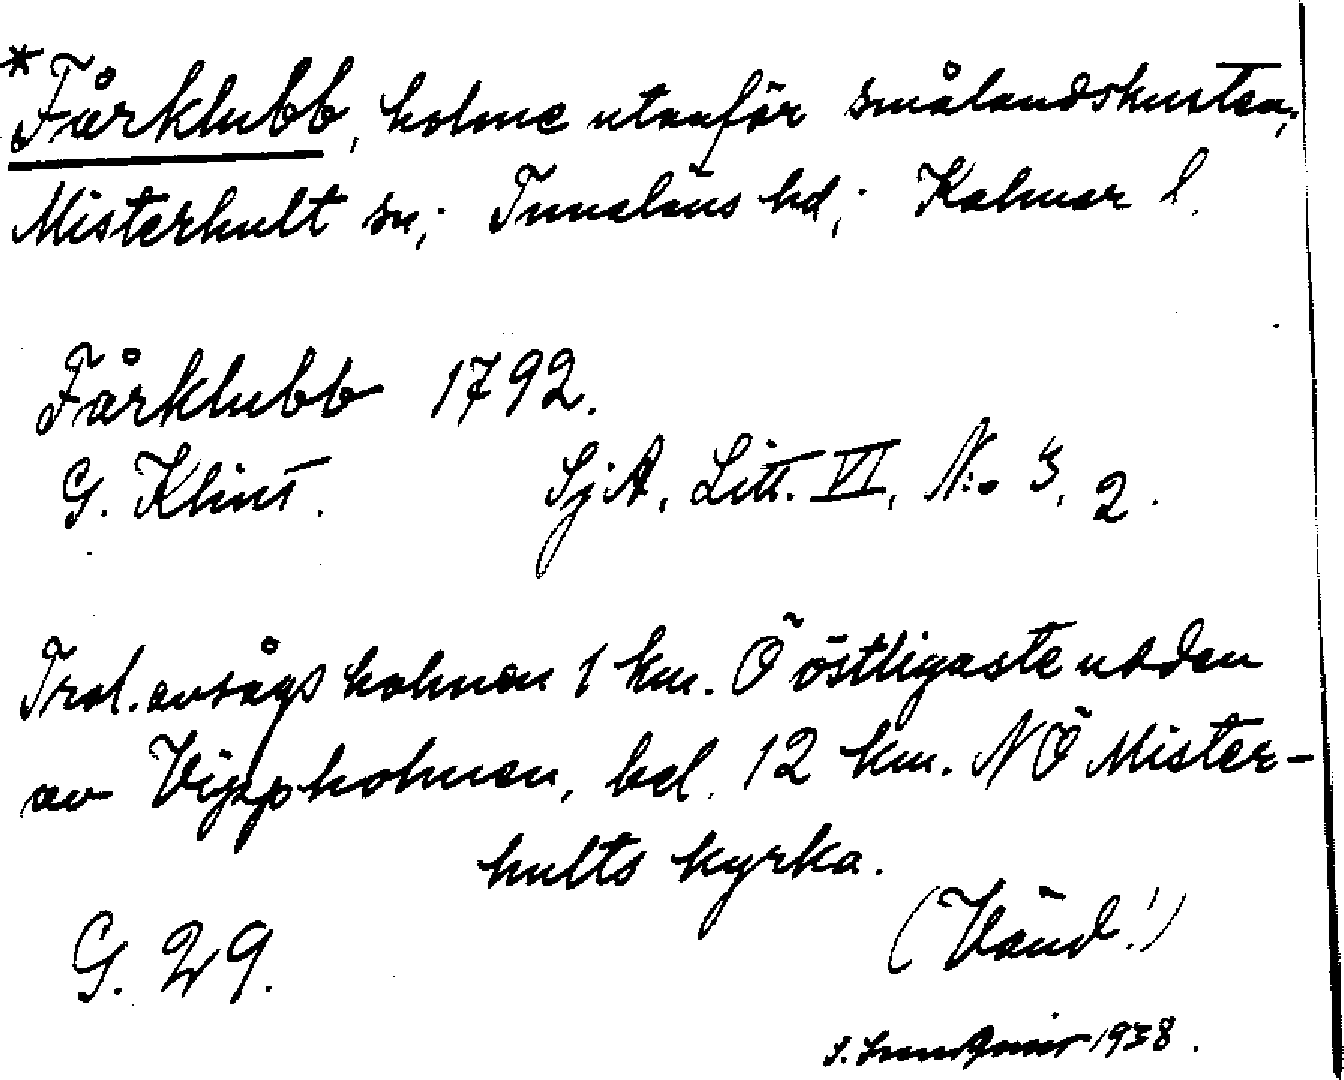 *Fårklubb, holme utanför smålandskusten;
Misterhult sn; Tunaläns hd; Kalmar l.
Fårklubb 1792.
G. Klint. SjA, Litt. VI, No 3, 2.
Trol. avsågs holmen 1 km. Ö östligaste udden
av Vipp holmen, bel. 12 km. NÖ Mister-
hults kyrka.
(Vänd!)
G. 29.
1938.